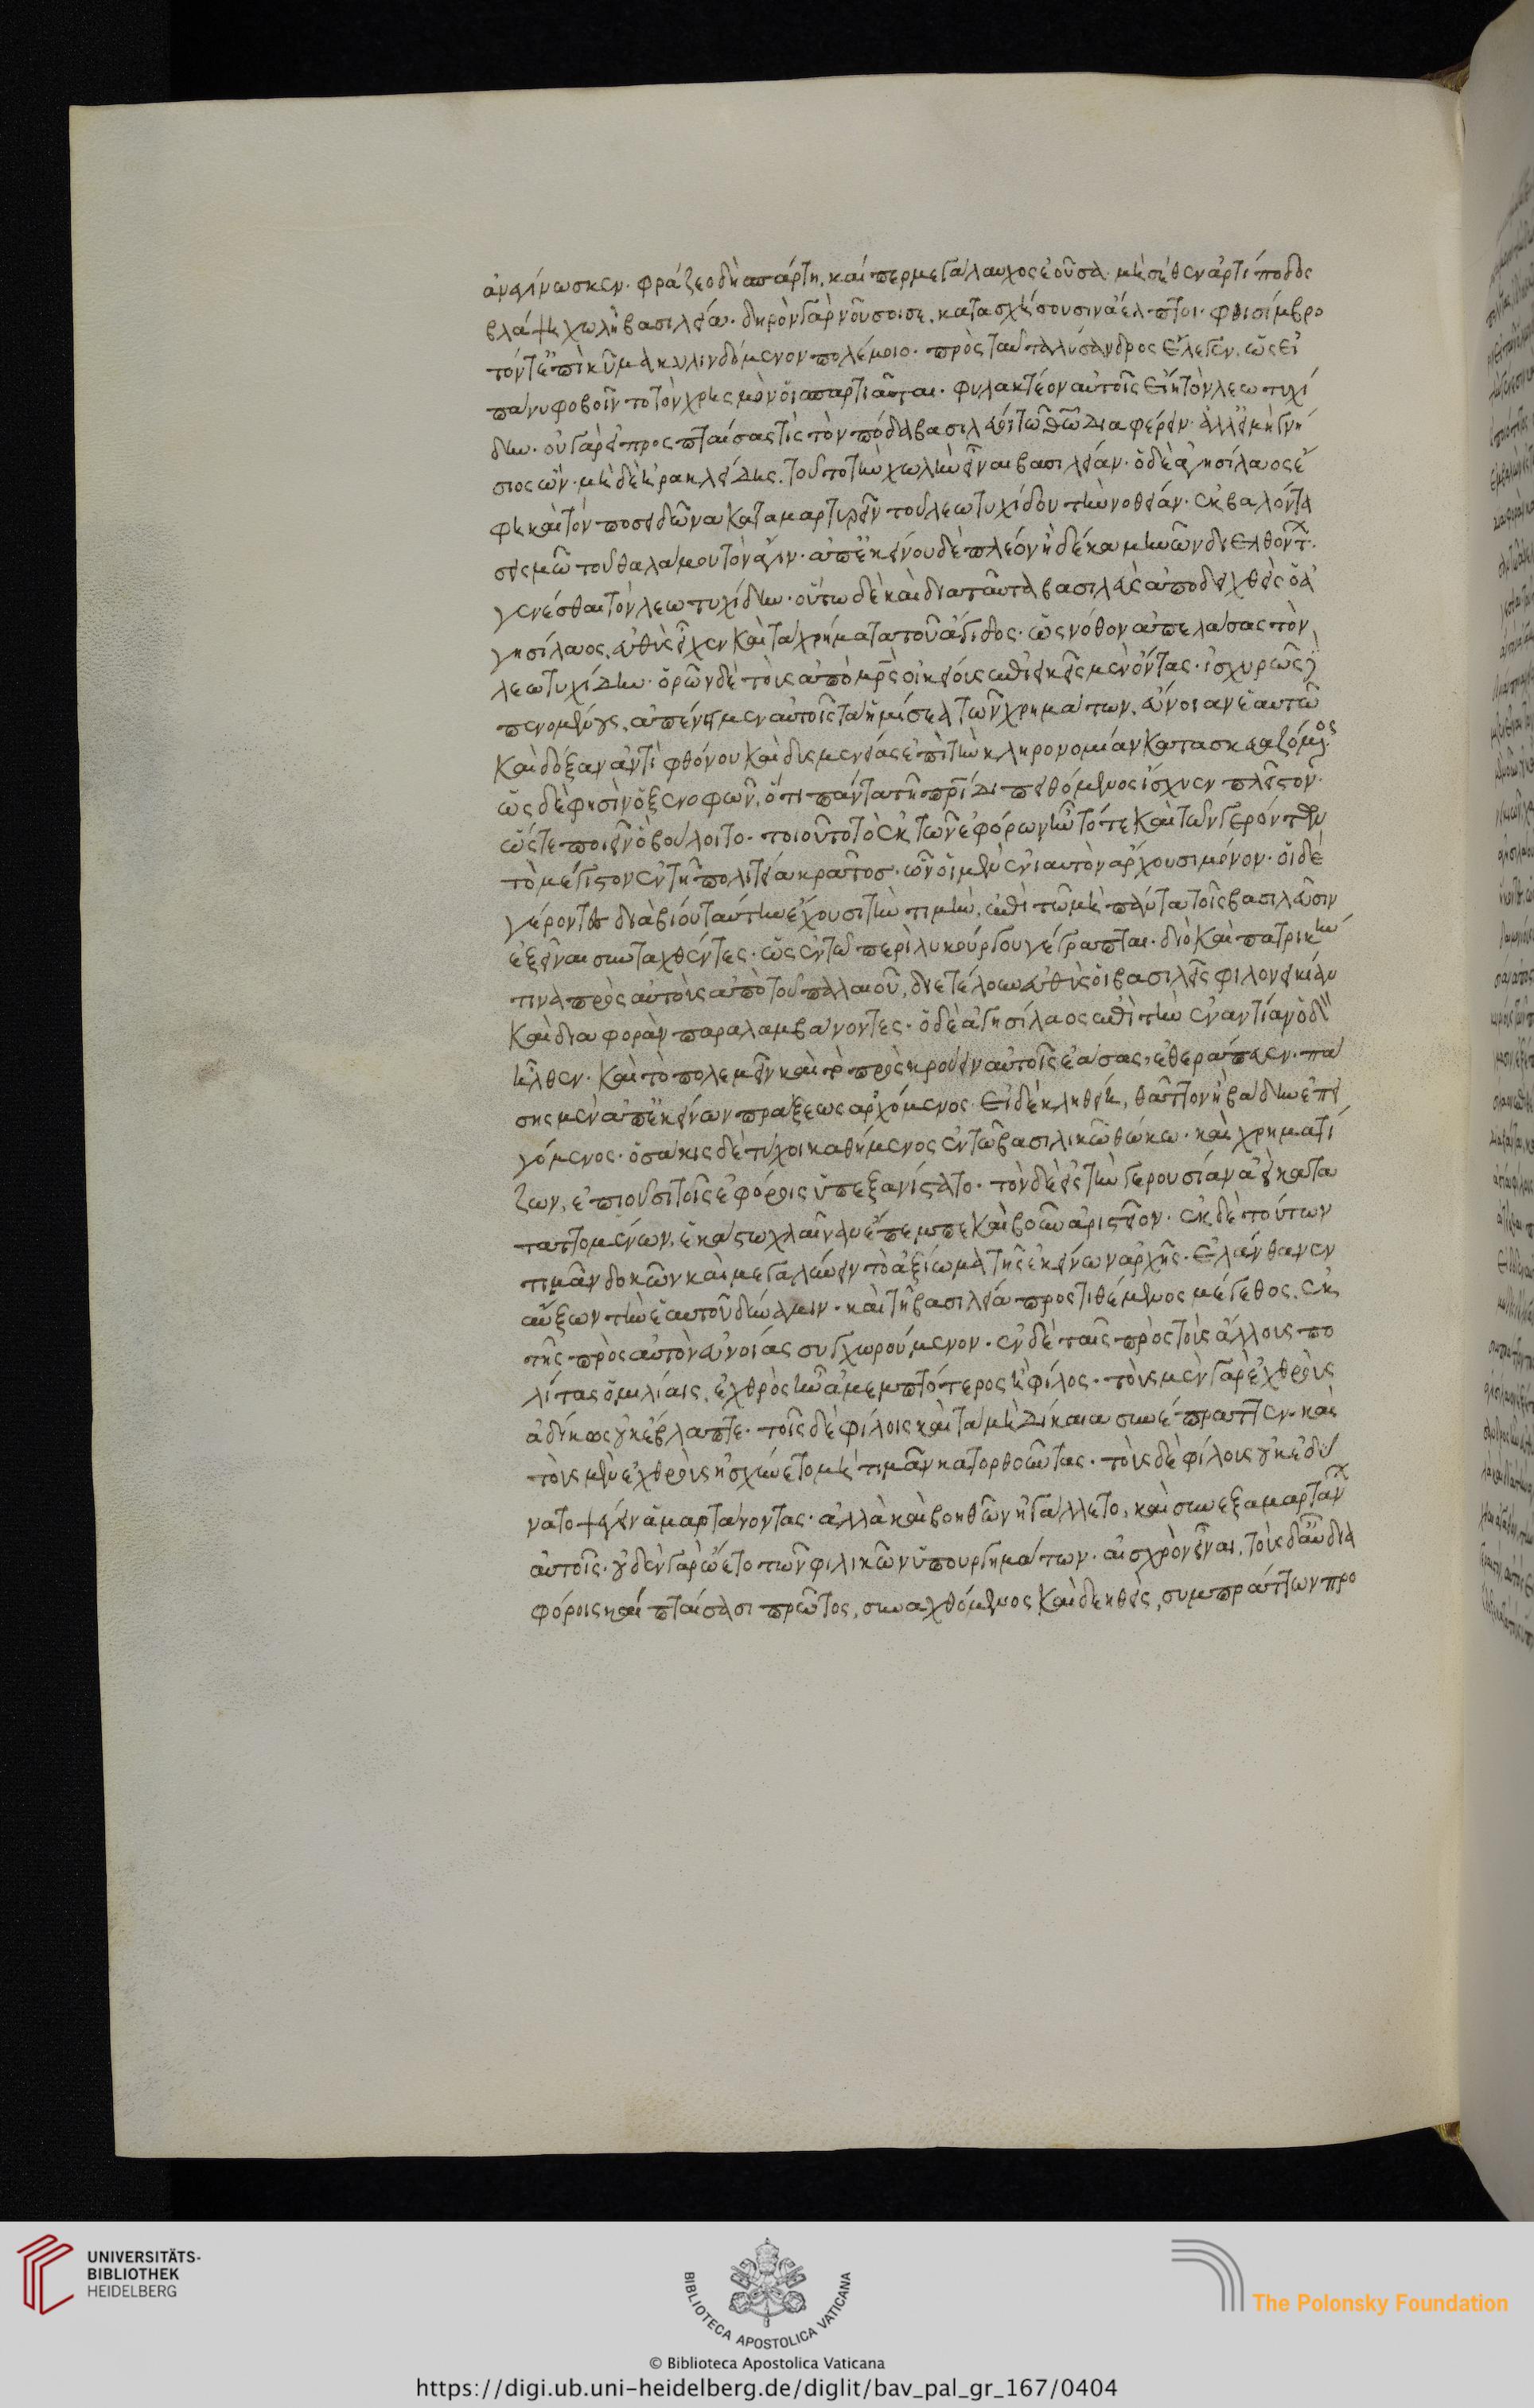 ἀνεγίνωσκεν· φράζεο δὴ σπάρτη, καί περ μεγάλαυχος ἐοῦσα· μὴ σέθεν ἀρτίποδος
βλάψῃ χωλὴ βασιλεία· δηρὸν γὰρ νοῦσοί σε, κατασχήσουσιν ἄελπτοι· φθισίμβρο
τόν τ' ἐπὶ κῦμα κυλινδόμενον πολέμοιο· πρὸς ταῦτα λύσανδρος ἔλεγεν, ὡς εἰ
πάνυ φοβοῖντο τὸν χρησμὸν οἱ σπαρτιᾶται· φυλακτέον αὐτοῖς εἴη τὸν λεωτυχί
δην· οὐ γὰρ εἰ προσπταίσας τίς τὸν πόδα βασιλεύει τῶ θεῶ διαφέρειν· ἀλλ' εἰ μὴ γνή
σιος ὢν· μὴ δὲ ἡρακλείδης, τοῦτο τὴν χωλὴν εἶναι βασιλείαν· ὁ δὲ ἀγησίλαος ἔ
φη καὶ τὸν ποσειδῶνα καταμαρτυρεῖν τοῦ λεωτυχίδου τὴν νοθείαν· ἐκβαλόντα
σεισμῶ τοῦ θαλάμου τὸν ἄγιν· ἀπ' ἐκείνου δὲ πλέον ἢ δέκα μηνῶν διελθόντ
γενέσθαι τὸν λεωτυχίδην· οὕτω δὲ καὶ διὰ ταῦτα βασιλεὺς ἀποδειχθεὶς ὁ ἀ
γησίλαος, εὐθὺς εἶχεν καὶ τὰ χρήματα τοῦ ἄγιδος· ὡς νόθον ἀπελάσας τὸν
λεωτυχίδην· ὁρῶν δὲ τοὺς ἀπὸ μρς οἰκείους ἐπιεικεῖς μὲν ὄντας· ἰσχυρῶς δὲ
πενομένους, ἀπένειμεν αὐτοῖς τὰ ἡμίσεα τῶν χρημάτων, εὔνοιαν ἑαυτῶ
καὶ δόξαν ἀντὶ φθόνου καὶ δυσμενείας ἐπὶ τῇ κληρονομίαν κατασκευαζόμενος
ὡς δέ φησὶν ὁ ξενοφῶν, ὅτι πάντα τῆ πρίδι πειθόμενος ἴσχυεν πλεῖστον·
ὥστε ποιεῖν ὃ βούλοιτο· τοιοῦτο τὸ ἐκ τῶν ἐφόρων ἦν τότε καὶ τῶν γερόντων
τὸ μέγιστον ἐν τῆ πολιτεία κράτος· ὧν οἱ μὲν ἐνιαυτὸν ἄρχουσι μόνον· οἱ δὲ
γέροντες διὰ βίου ταύτην ἔχουσι τὴν τιμὴν, ἐπὶ τῶ μὴ πάντα τοῖς βασιλεῦσιν
ἐξεῖναι συνταχθέντες· ὡς ἐν τῶ περὶ λυκούργου γέγραπται· διὸ καὶ πατρικήν
τινα πρὸς αὐτοὺς ἀπὸ τοῦ παλαιοῦ, διετέλουν εὐθὺς οἱ βασιλεῖς φιλονεικίαν
καὶ διαφορὰν παραλαμβάνοντες· ὁ δὲ ἀγησίλαος ἐπὶ τὴν ἐναντίαν ὁδὸν
ἦλθεν· καὶ τὸ πολεμεῖν καὶ τὸ προσκρούειν αὐτοῖς ἐάσας, ἐθεράπευεν· πά
σης μὲν ἀπ' ἐκείνων πράξεως ἀρχόμενος· εἰ δὲ κληθείη, θᾶττον ἢ βάδην ἐπει
γόμενος· ὁσάκις δὲ τύχοι καθήμενος ἐν τῶ βασιλικῶ θώκω· καὶ χρηματί
ζων, ἐπιοῦσι τοῖς ἐφόροις ὑπεξανίστατο· τὸν δὲ εἰς τὴν γερουσίαν ἀεὶ κατα
ταττομένων, ἑκάστω χλαῖναν ἔπεμπε καὶ βοῦν ἀριστεῖον· ἐκ δὲ τούτων
τιμᾶν δοκῶν καὶ μεγαλύνειν τὸ ἀξίωμα τῆς ἐκείνων ἀρχῆς· ἐλάνθανεν
αὔξων τὴν ἑαυτοῦ δύναμιν· καὶ τῆ βασιλεία προστιθέμενος μέγεθος, ἐκ
τῆς πρὸς αὐτὸν εὐνοίας συγχωρούμενον· ἐν δὲ ταῖς πρὸς τοὺς ἄλλους πο
λίτας ὁμιλίαις, ἐχθρὸς ἦν ἀμεμπτότερος ἢ φίλος· τοὺς μὲν γὰρ ἐχθροὺς
ἀδίκως οὐκ ἔβλαπτε· τοῖς δὲ φίλοις καὶ τὰ μὴ δίκαια συνέπραττεν· καὶ
τοὺς μὲν ἐχθροὺς ἠσχύνετο μὴ τιμᾶν κατορθοῦντας· τοὺς δὲ φίλους οὐκ ἐδύ
νατο ψέγειν ἁμαρτάνοντας· ἀλλὰ καὶ βοηθῶν ἠγάλλετο, καὶ συνεξαμαρτάνων
αὐτοῖς· οὐδὲν γὰρ ὤετο τῶν φιλικῶν ὑπουργημάτων· αἰσχρὸν εἶναι, τοῖς δ' αὖ δια
φόροις καὶ πταίσασι πρῶτος, συναχθόμενος καὶ δεηθεὶς, συμπράττων προ
UNIVERSITÄTS-
BIBLIOTHEK
HEIDELBERG
BIBLIOTECA APOSTOLICA VATICANA
The Polonsky Foundation
© Biblioteca Apostolica Vaticana
https://digi.ub.uni-heidelberg.de/diglit/bav_pal_gr_167/0404